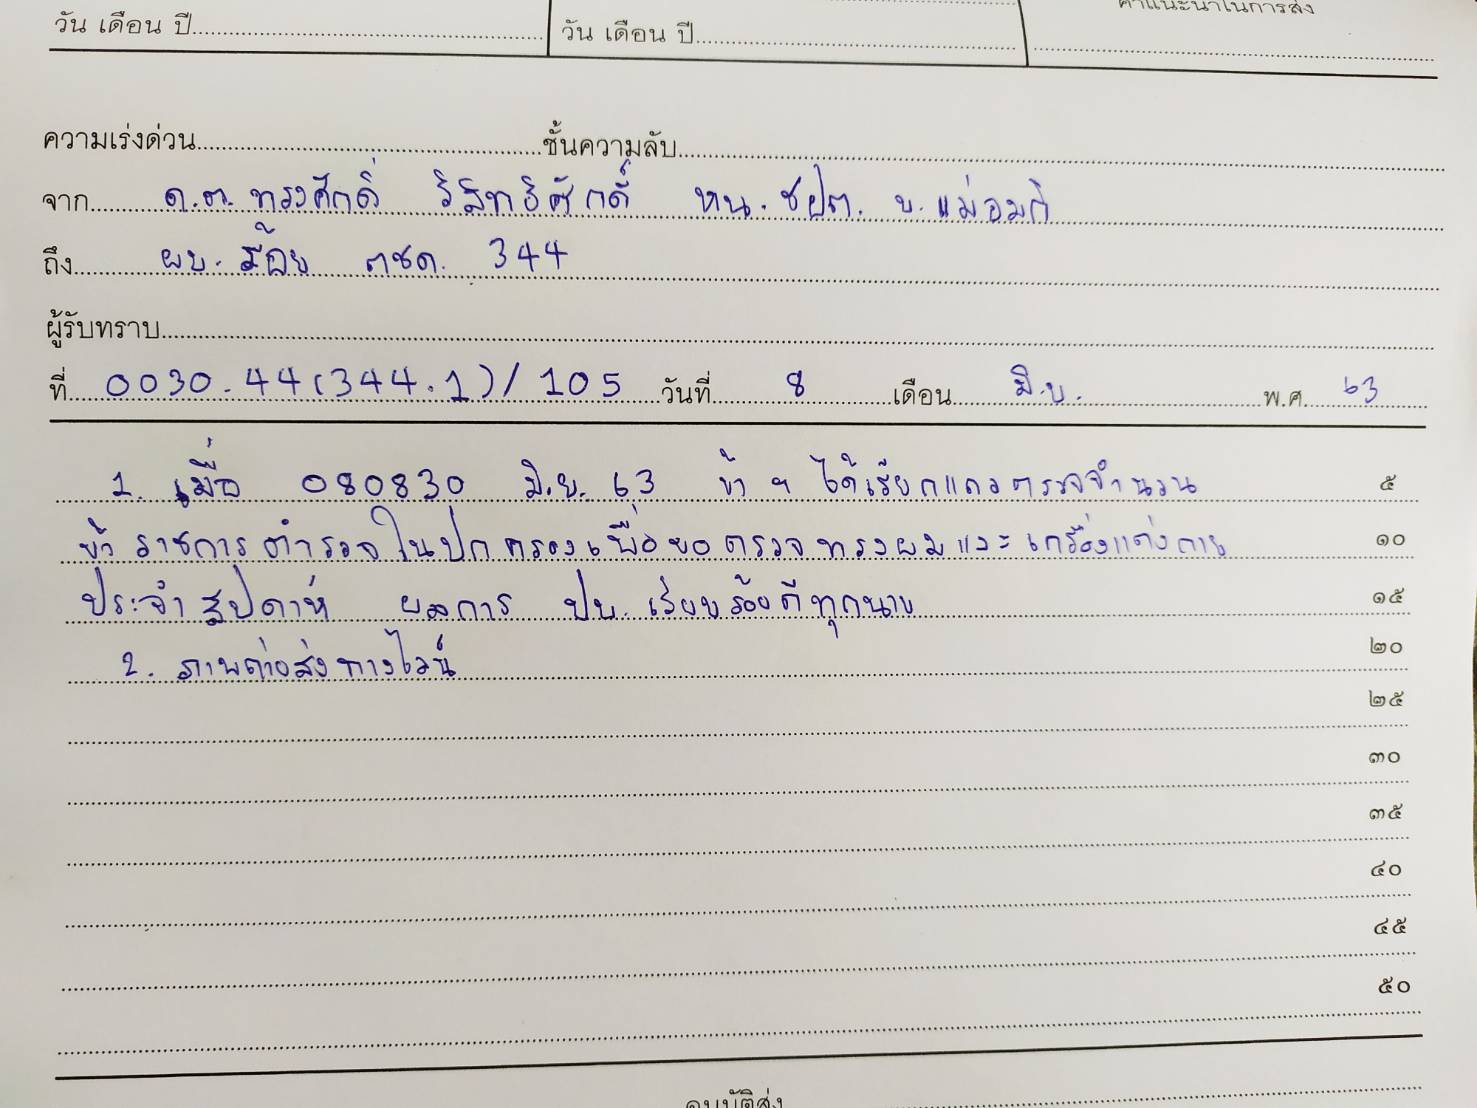 วัน เดือน ปี
วัน เดือน ปี
คำแนะนำในการส่ง
ความเร่งด่วน ชั้นความลับ
จาก ด.ต. ทรงศักดิ์ วิสิทธิศักดิ์ หน. ชปต. บ. แม่อมกิ
ถึง ผบ. ร้อย ตชด. 344
ผู้รับทราบ
ที่ 0030.44(344.1)/105 วันที่ 8 เดือน มิ.ย. พ.ศ. 63
1. เมื่อ 080830 มิ.ย. 63 ข้า ฯ ได้เรียกแถวตรวจจำนวน ๕
ข้าราชการตำรวจในปกครองเพื่อขอตรวจทรงผมและเครื่องแต่งกาย ๑๐
ประจำสัปดาห์ ผลการ ปบ. เรียบร้อยดีทุกนาย ๑๕
2. ภาพถ่ายส่งทางไลน์ ๒๐
๒๕
๓๐
๓๕
๔๐
๔๕
๕๐
อนุมัติส่ง